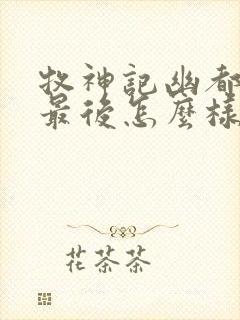 牧神記幽都
最後怎麼樣
花茶茶